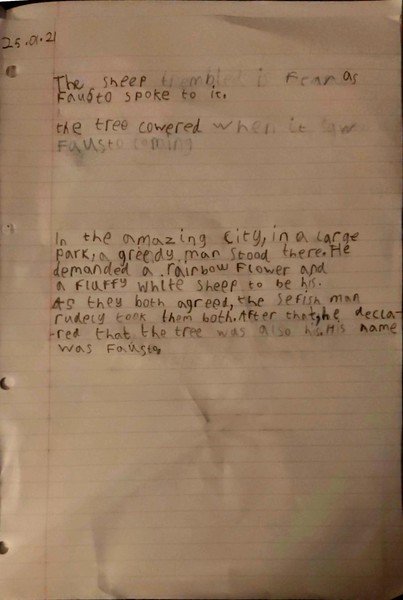 25.9.21
The sheep trembled in Fear as
Fausto spoke to it.
the tree cowered when it saw
Fausto coming
In the amazing City, in a large
park, a greedy man stood there. He
demanded a rainbow Flower and
a Fluffy white sheep to be his.
As they both agreed, the sefish man
rudely took them both. After that, he decla-
-red that the tree was also his. His name
was Fausto.